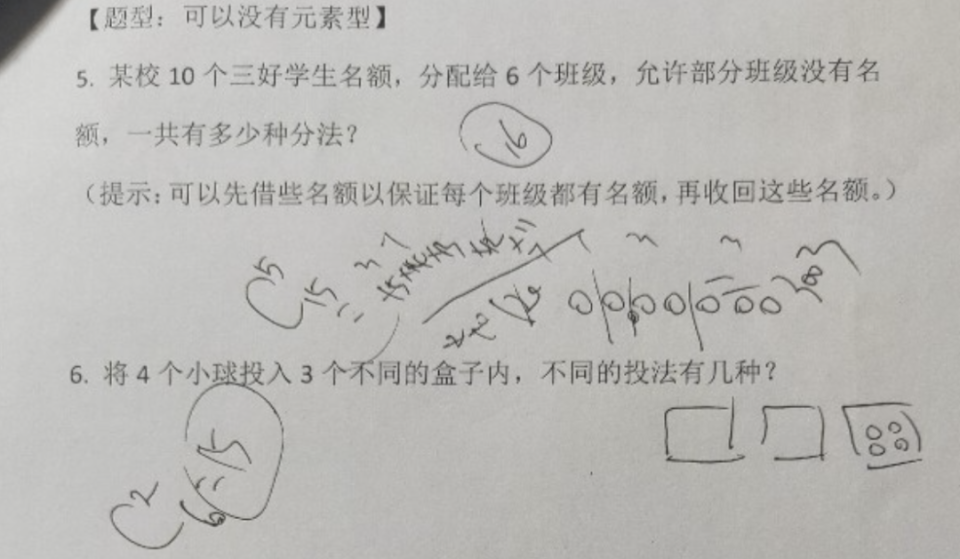 【题型：可以没有元素型】
5. 某校 10 个三好学生名额，分配给 6 个班级，允许部分班级没有名
额，一共有多少种分法？
16
（提示：可以先借些名额以保证每个班级都有名额，再收回这些名额。）
C 5 15 =
6. 将 4 个小球投入 3 个不同的盒子内，不同的投法有几种？
C 2 6 = 15